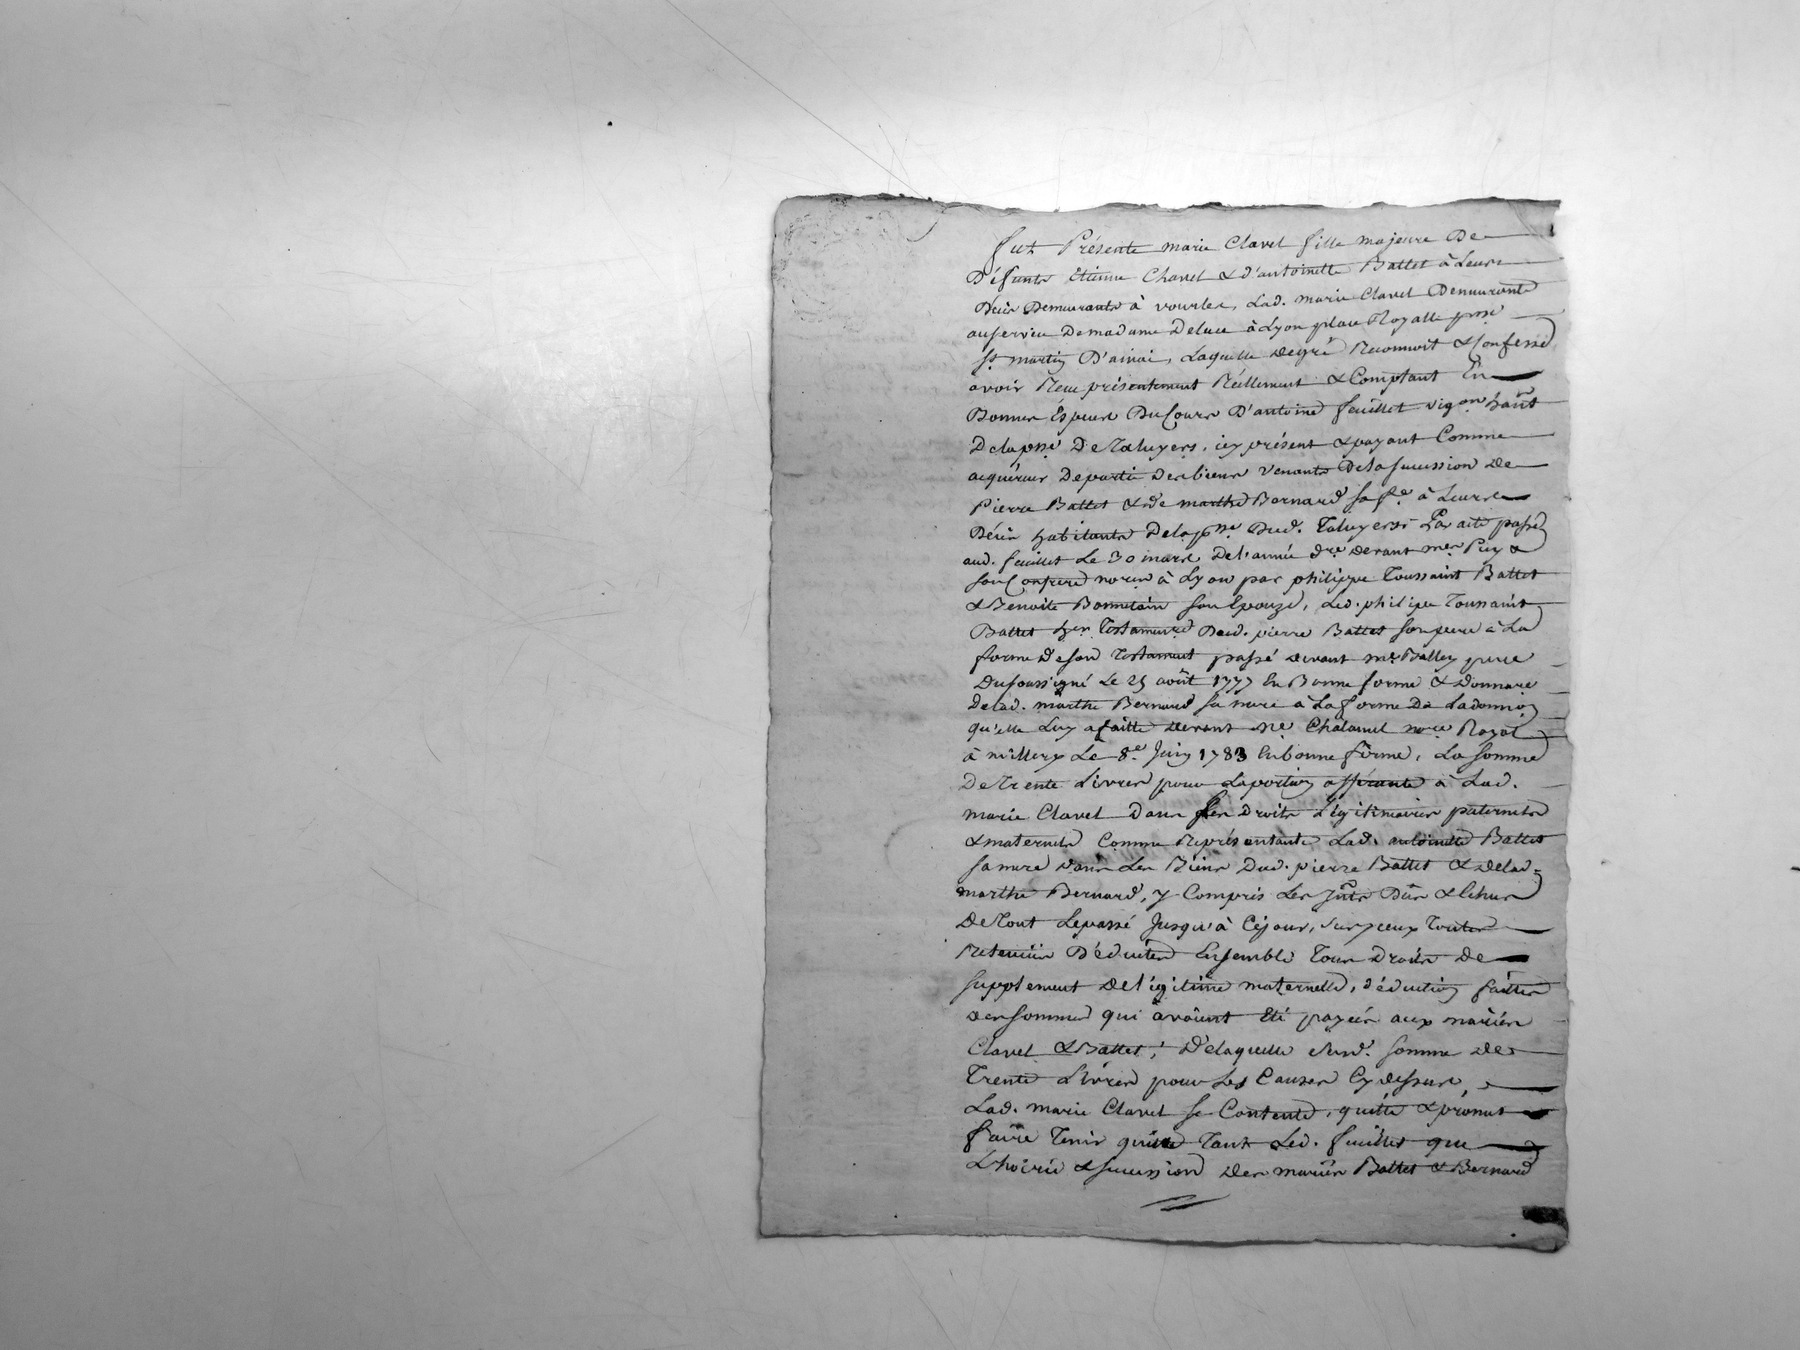 fut Présente marie Clavel fille majeure De
Défunts Etienne Clavel & d'antoinette Battet à Leurs
Décès Demeurants à vourles, Lad. marie Clavel Demeurante
au service De madame Deluce à Lyon place Royalle psse
St martin D'ainai, Laquelle degré Reconnoit & Confesse
avoir Reçu présentement Réellement & Comptant En
Bonnes Espèces Du Cours D'antoine feuillet vigon habt
De la psse De Taluyers, icy présent & payant Comme
acquéreur De partie des biens venants De la succession de
Pierre Battet & de marthe Bernard sa fe à Leurs
Décès habitants De la psse Dud. Taluyers Par acte passé
aud. feuillet Le 30 mars De l'année dre devant mes Puy &
son Confrere nores à Lyon par philippe Toussaint Battet
& Benoite Bonnetain son Epouze, Led. philipe Toussaint
Battet her. Testamre Dud. pierre Battet son pere à La
forme De son Testament passé devant me Balley pere
Du soussigné Le 25 août 1777 En Bonne forme & Donnare
De lad. marthe Bernard sa mere à La forme De La donnion
qu'elle Luy a faitte devant Me Chalamel nore Royal
à millery Le 8e Juin 1783 En bonne forme, La somme
De Trente Livres pour La portion afférante à Lad.
marie Clavel Dans ses Droits Légitimaires paternels
& maternels Comme Représentante Lad. antoinette Battet
sa mere dans Les Biens Dud. pierre Battet & de lad.
marthe Bernard, y Compris Les Ints Dûs & Echus
De Tout Le passé Jusqu'à Ce jour, sur iceux Toutes
Retenües Déduites Ensemble Tous Droits De
supplement De légitime maternelle, déduction faitte
des sommes qui avoient Eté payées aux mariés
Clavel & Battet; De laquelle susd. somme de
Trente Livres pour Les Causes Cy dessus,
Lad. marie Clavel se Contente, quitte & promet
faire Tenir quitte Tant Led. feuillet que
L'hoirie & succession des mariés Battet & Bernard